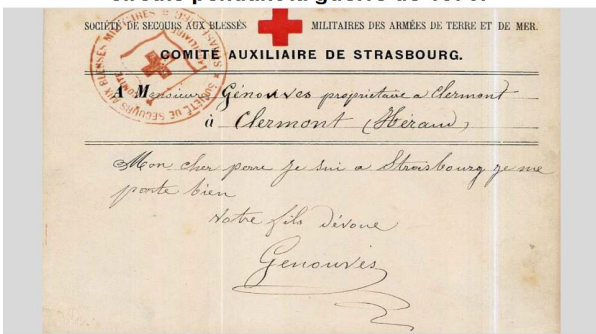 circulé pendant la guerre de 1870.
SOCIÉTÉ DE SECOURS AUX BLESSÉS MILITAIRES DES ARMÉES DE TERRE ET DE MER.
COMITÉ AUXILIAIRE DE STRASBOURG.
SOCIÉTÉ DE SECOURS AUX BLESSÉS MILITAIRES
A Monsieur Génouves propriétaire a Clermont
à Clermont (Hérault)
Mon cher pere je sui a Strasbourg je me
porte bien
Votre fils dévoué
Genouvès